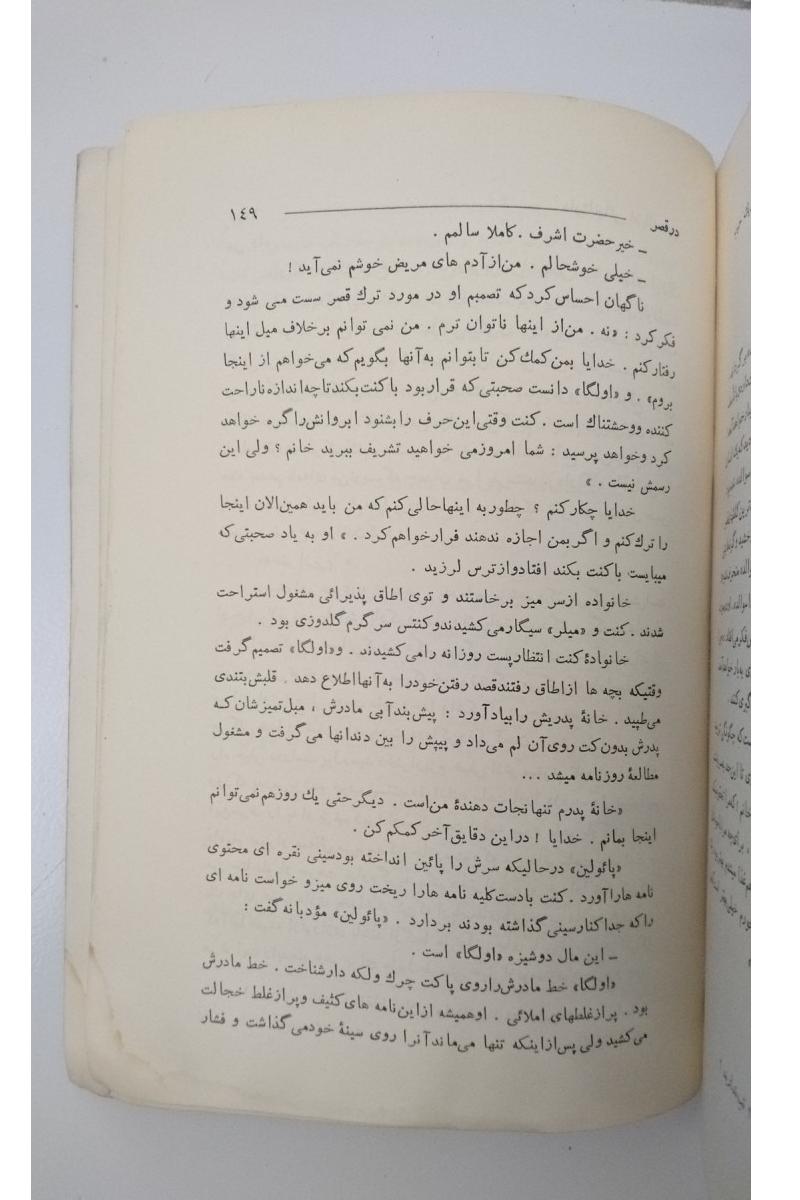 در قصر ۱٤۹
_ خیر حضرت اشرف . کاملا سالمم .
_ خیلی خوشحالم . من از آدم های مریض خوشم نمی آید !
ناگهان احساس کرد که تصمیم او در مورد ترك قصر سست می شود و
فکر کرد : «نه . من از اینها ناتوان ترم . من نمی توانم برخلاف میل اینها
رفتار کنم . خدایا بمن کمك کن تا بتوانم به آنها بگویم که می خواهم از اینجا
بروم» . و «اولگا» دانست صحبتی که قرار بود با کنت بکند تا چه اندازه ناراحت
کننده و وحشتناك است . کنت وقتی این حرف را بشنود ابروانش را گره خواهد
کرد و خواهد پرسید : شما امروز می خواهید تشریف ببرید خانم ؟ ولی این
رسمش نیست . »
خدایا چکار کنم ؟ چطور به اینها حالی کنم که من باید همین الان اینجا
را ترك کنم و اگر بمن اجازه ندهند فرار خواهم کرد . » او به یاد صحبتی که
میبایست با کنت بکند افتاد و از ترس لرزید .
خانواده از سر میز برخاستند و توی اطاق پذیرائی مشغول استراحت
شدند . کنت و «میلر» سیگار می کشیدند و کنتس سر گرم گلدوزی بود .
خانوادۀ کنت انتظار پست روزانه را می کشیدند . و «اولگا» تصمیم گرفت
وقتیکه بچه ها از اطاق رفتند قصد رفتن خود را به آنها اطلاع دهد . قلبش بتندی
می طپید . خانۀ پدریش را بیاد آورد : پیش بند آبی مادرش ، مبل تمیزشان که
پدرش بدون کت روی آن لم می داد و پیپش را بین دندانها می گرفت و مشغول
مطالعۀ روزنامه میشد ...
«خانۀ پدرم تنها نجات دهندۀ من است . دیگر حتی یك روز هم نمی توانم
اینجا بمانم . خدایا ! در این دقایق آخر کمکم کن .
«پائولین» در حالیکه سرش را پائین انداخته بود سینی نقره ای محتوی
نامه ها را آورد . کنت با دست کلیه نامه ها را ریخت روی میز و خواست نامه ای
را که جدا کنار سینی گذاشته بودند بردارد . «پائولین» مؤدبانه گفت :
_ این مال دوشیزه «اولگا» است .
«اولگا» خط مادرش را روی پاکت چرك و لکه دار شناخت . خط مادرش
بود . پر از غلطهای املائی . او همیشه از این نامه های کثیف و پر از غلط خجالت
می کشید ولی پس از اینکه تنها می ماند آنرا روی سینۀ خود می گذاشت و فشار